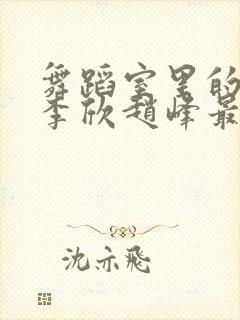 舞蹈室里的
李欣赵峰最
沈亦飞